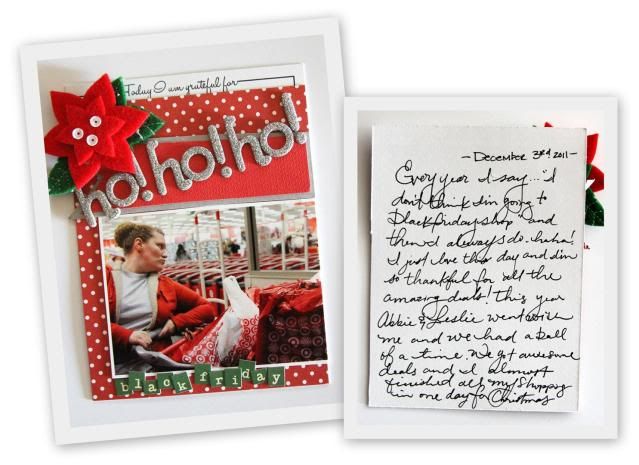 Today I am grateful for
ho! ho! ho!
black friday
- December 3rd 2011 -
Every year I say... "I
don't think I'm going to
black friday shop" and
then I always do. haha!
I just love this day and I'm
so thankful for all the
amazing deals! This year
Abbie & Leslie went with
me and we had a ball
of a time. We got awesome
deals and I almost
finished all my shopping
in one day for Christmas